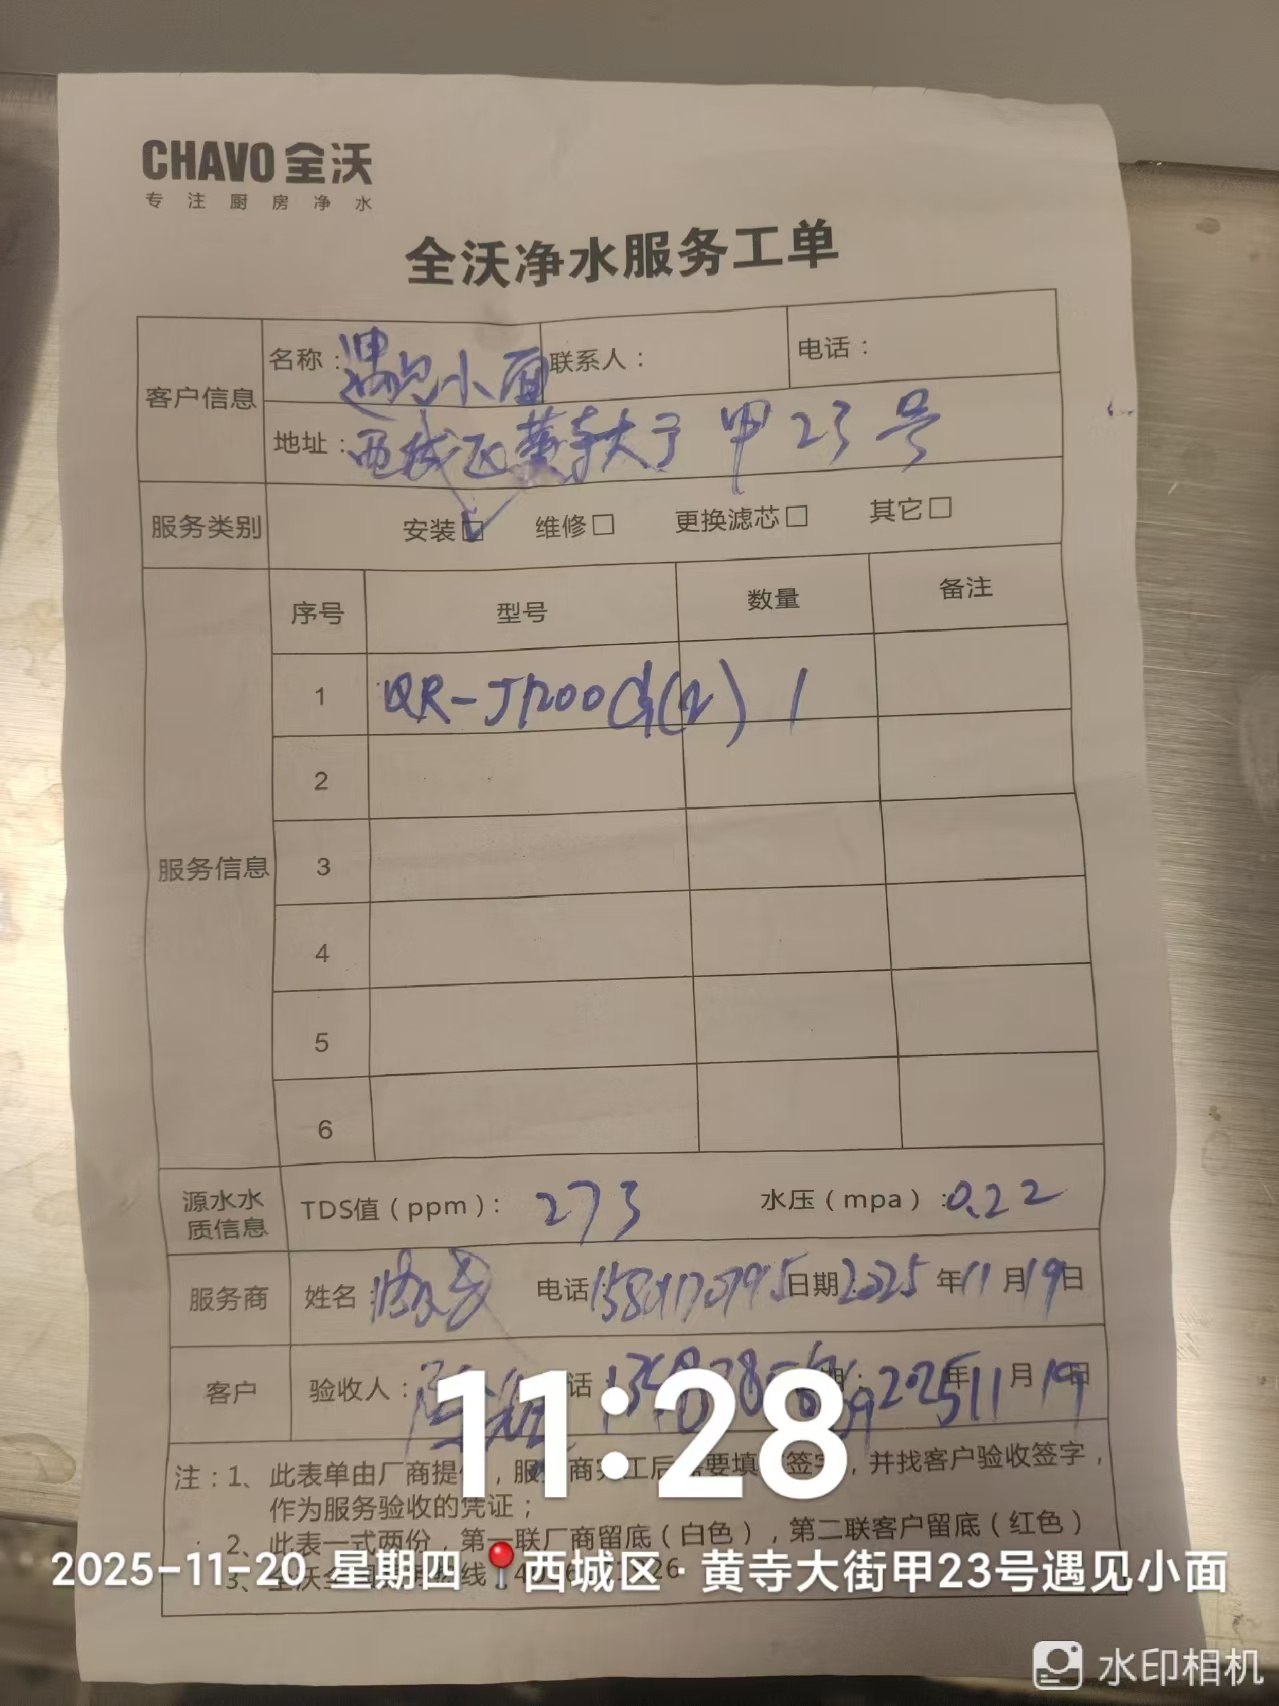 CHAVO 全沃
专注厨房净水
全沃净水服务工单
客户信息 名称：遇见小面 联系人： 电话：
地址：西城区黄寺大街甲23号
服务类别 安装 维修 更换滤芯 其它
服务信息 序号 型号 数量 备注
1 QR-J1200G(2) 1
2
3
4
5
6
源水水质信息 TDS值（ppm）： 273 水压（mpa）：0.22
服务商 姓名： 电话 日期：2025年11月19日
客户 验收人： 话： 期：2025年11月19日
11:28
注：1、此表单由厂商提 服 商完工后需要填 签字，并找客户验收签字，
作为服务验收的凭证；
2、此表一式两份，第一联厂商留底（白色），第二联客户留底（红色）
3、全沃全国 热线
2025-11-20 星期四 西城区·黄寺大街甲23号遇见小面
水印相机